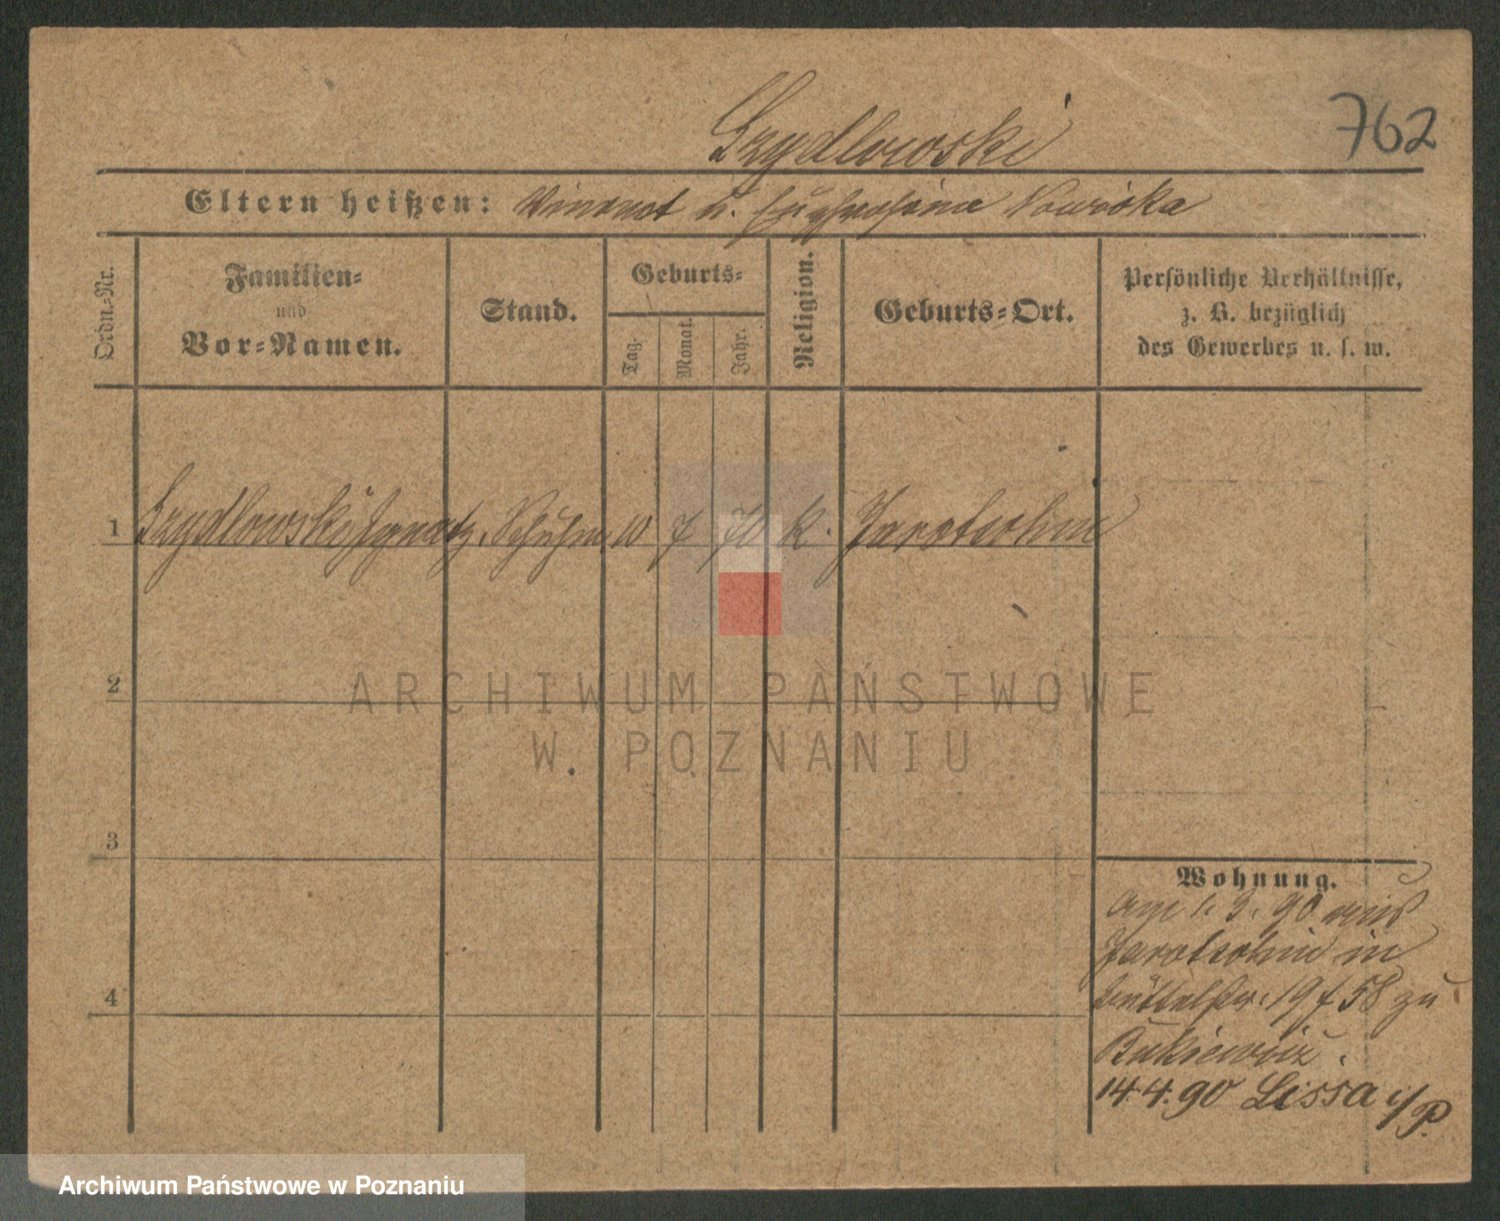 Szydlowski
762
Eltern heißen: Vincent u. Euphrosina Nowicka
Ordn.-Nr.
Familien-
und
Vor-Namen.
Stand.
Geburts-
Tag.
Monat.
Jahr.
Religion.
Geburts-Ort.
Persönliche Verhältnisse,
z. B. bezüglich
des Gewerbes u. s. w.
1 Szydlowski Ignatz, Schuhm 10 7 70 k. Jarotschin
2
3
4
Wohnung.
Am 1. 3. 90 aus
Jarotschin in
Büttelstr. 19 f 58 zu
14.4.90 Lissa i/P.
ARCHIWUM PAŃSTWOWE
W POZNANIU
Archiwum Państwowe w Poznaniu